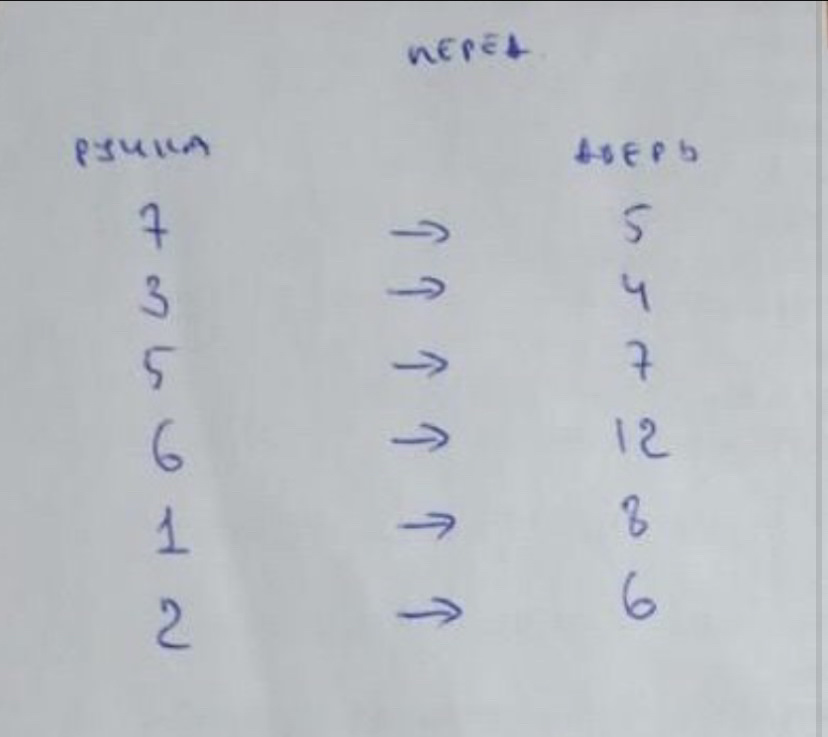 ПЕРЕД
РУЧКА ДВЕРЬ
7 → 5
3 → 4
5 → 7
6 → 12
1 → 8
2 → 6